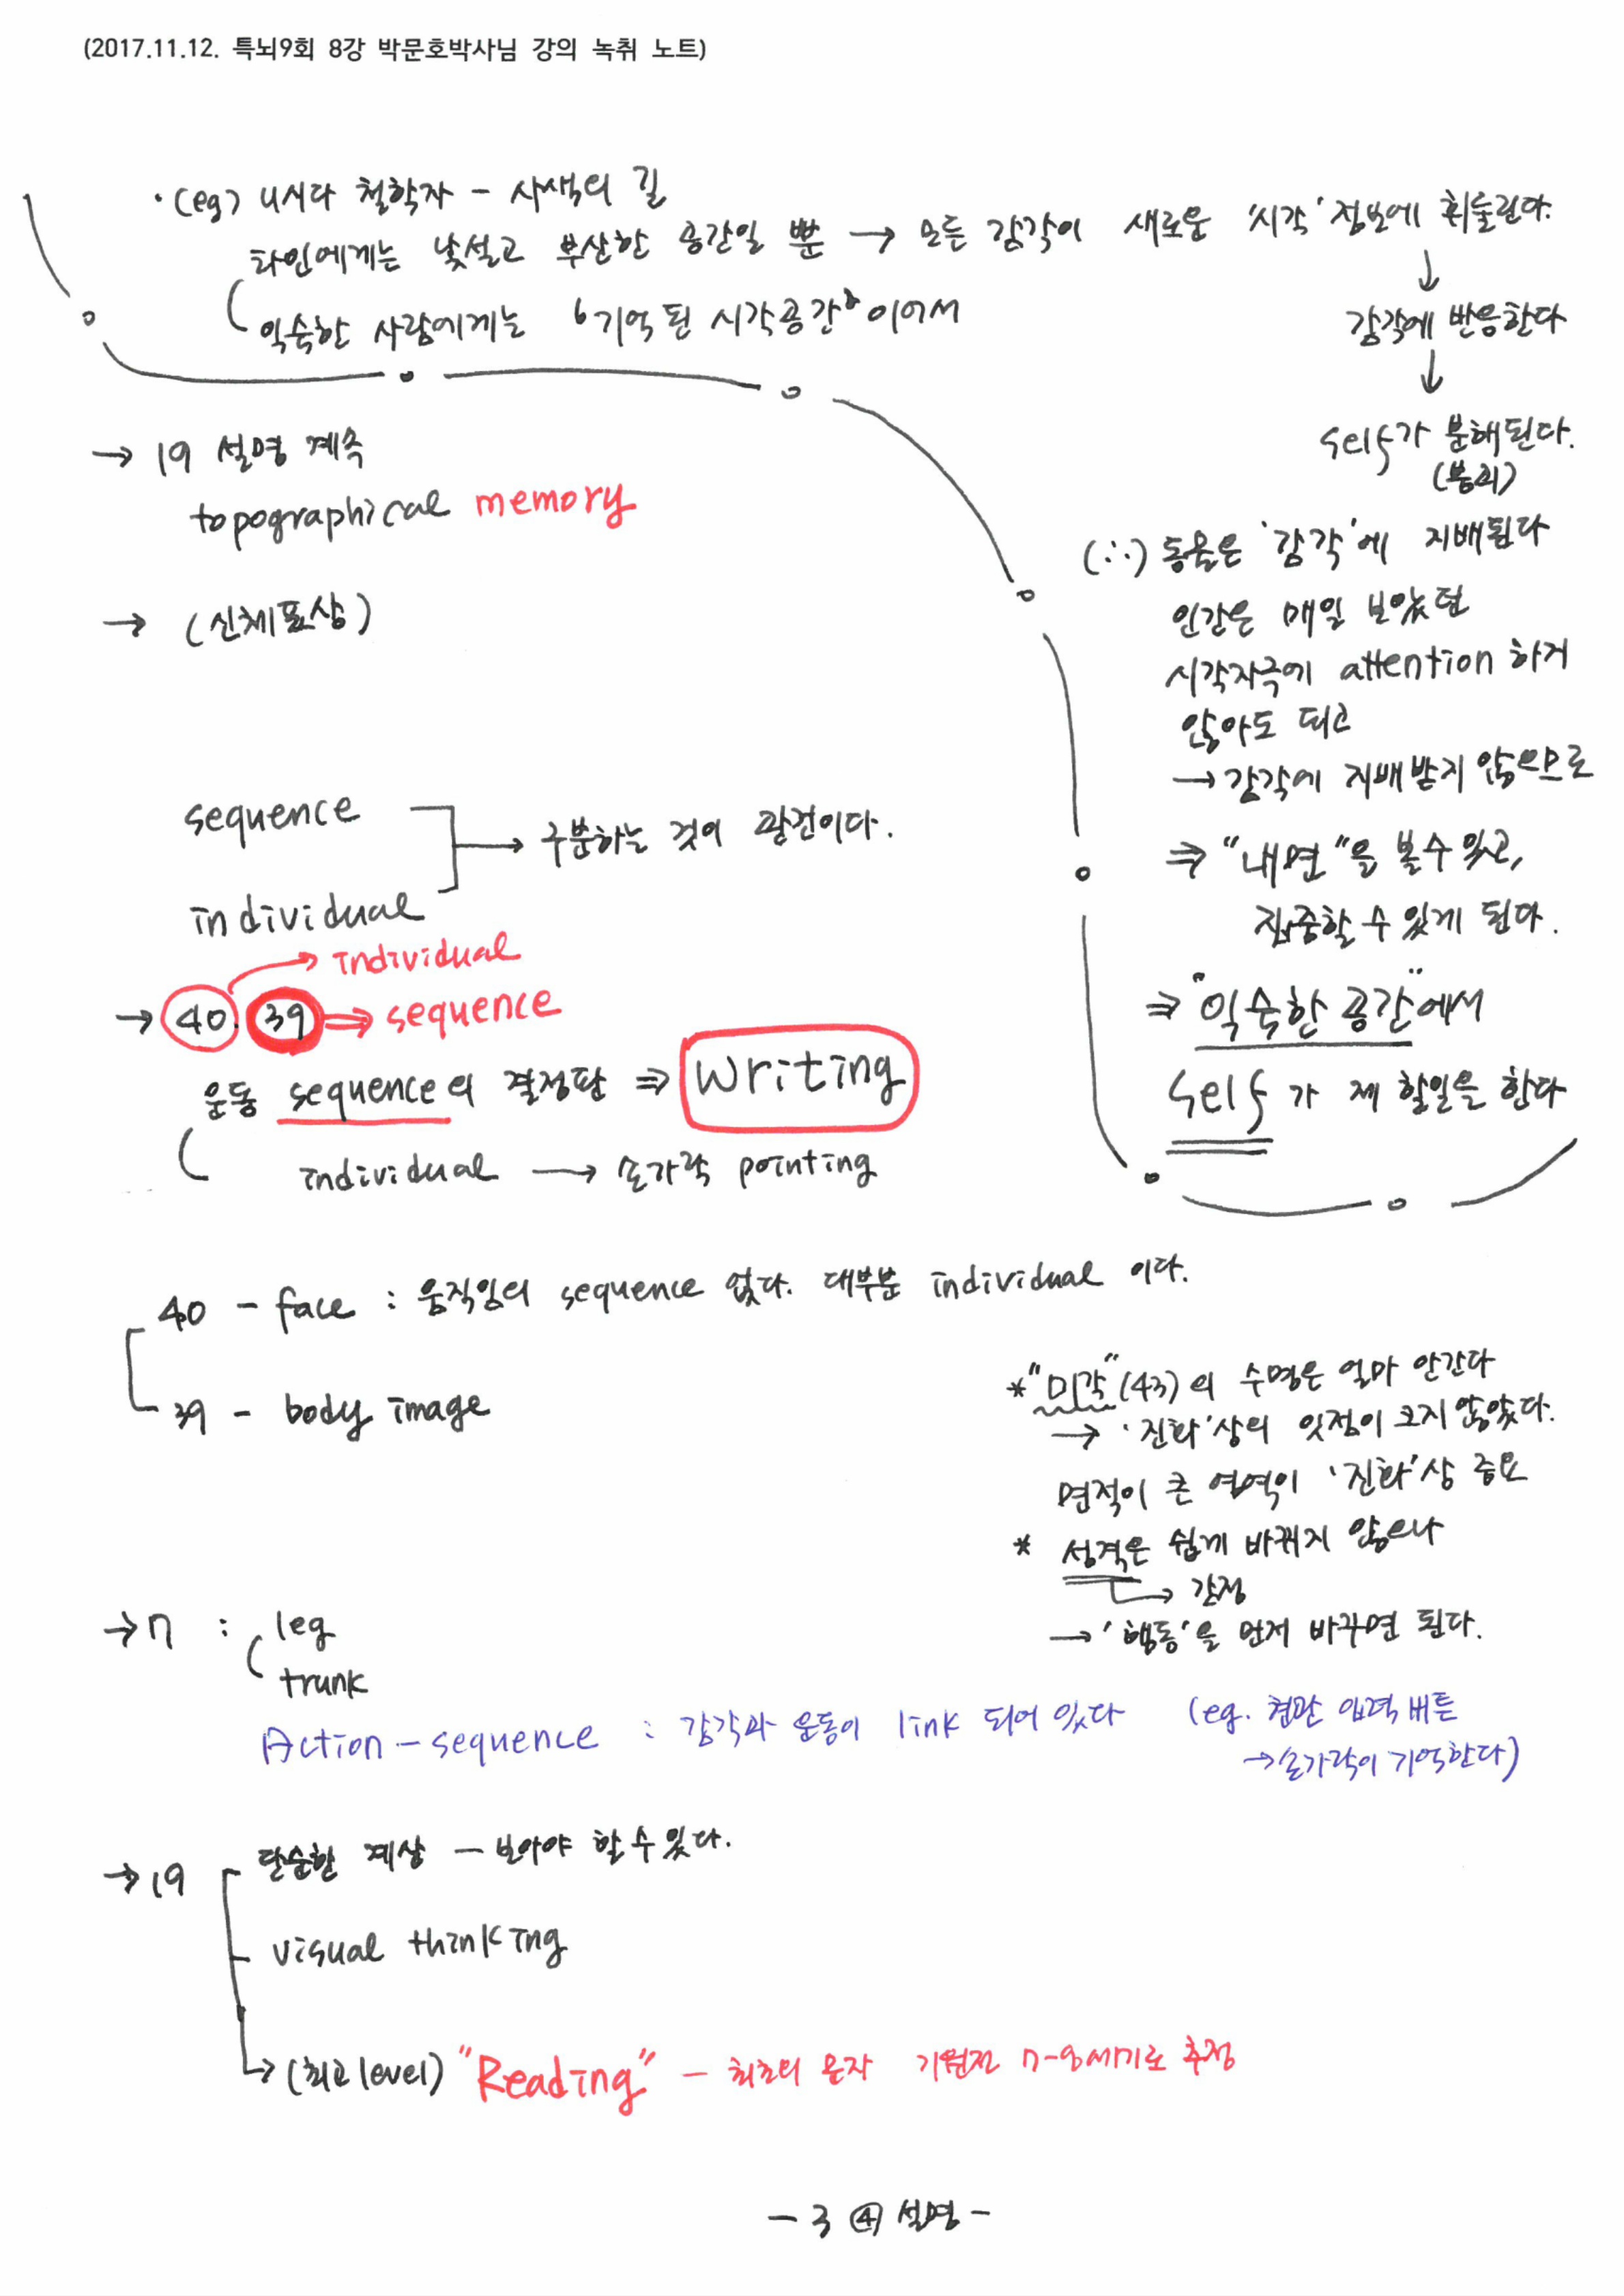 (2017.11.12. 특뇌9회 8강 박문호박사님 강의 녹취 노트)
· (eg) 니시다 철학자 - 사색의 길
타인에게는 낯설고 부산한 공간일 뿐 → 모든 감각이 새로운 '시각' 정보에 휘둘린다.
익숙한 사람에게는 '기억된 시각공간'이어서
↓
감각에 반응한다
↓
self가 분해된다.
(붕괴)
(∴) 동물은 '감각'에 지배된다
인간은 매일 보았던
시각자극에 attention 하지
않아도 되고
→ 감각에 지배받지 않으므로
⇒ "내면"을 볼수 있고,
집중할 수 있게 된다.
⇒ "익숙한 공간"에서
self가 제 할일을 한다
→ 19 설명 계속
topographical memory
→ (신체표상)
sequence
→ 구분하는 것이 관건이다.
individual
→ individual
→ 40. 39 ⇒ sequence
운동 sequence의 결정판 ⇒ writing
individual → 손가락 pointing
40 - face : 움직임의 sequence 없다. 대부분 individual 이다.
39 - body image
* "미각"(43)의 수명은 얼마 안간다
→ '진화'상의 잇점이 크지 않았다.
면적이 큰 영역이 '진화'상 중요
* 성격은 쉽게 바뀌지 않으나
→ 감정
→ '행동'을 먼저 바꾸면 된다.
→ 7 : leg
trunk
Action - sequence : 감각과 운동이 link 되어 있다 (eg. 현관 입력 버튼
→ 손가락이 기억한다)
→ 19 단순한 계상 - 보아야 할 수 있다.
visual thinking
→ (최고 level) "Reading" - 최초의 문자 기원전 7-8세기로 추정
- 3 ④ 설명 -